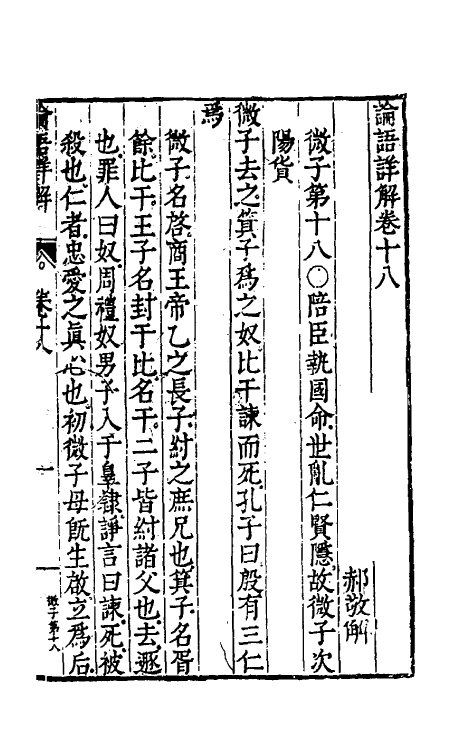 論語詳解卷十八
郝敬解
微子第十八○陪臣執國命世亂仁賢隱故微子次
陽貨
微子去之箕子爲之奴比干諫而死孔子曰殷有三仁
焉
微子名啓商王帝乙之長子紂之庶兄也箕子名胥
餘比干王子名封于比名干二子皆紂諸父也去遯
也罪人曰奴周禮奴男子入于皐隸諍言曰諫死被
殺也仁者忠愛之眞心也初微子母旣生啟立爲后
論語詳解
卷十八
一
微子第十八